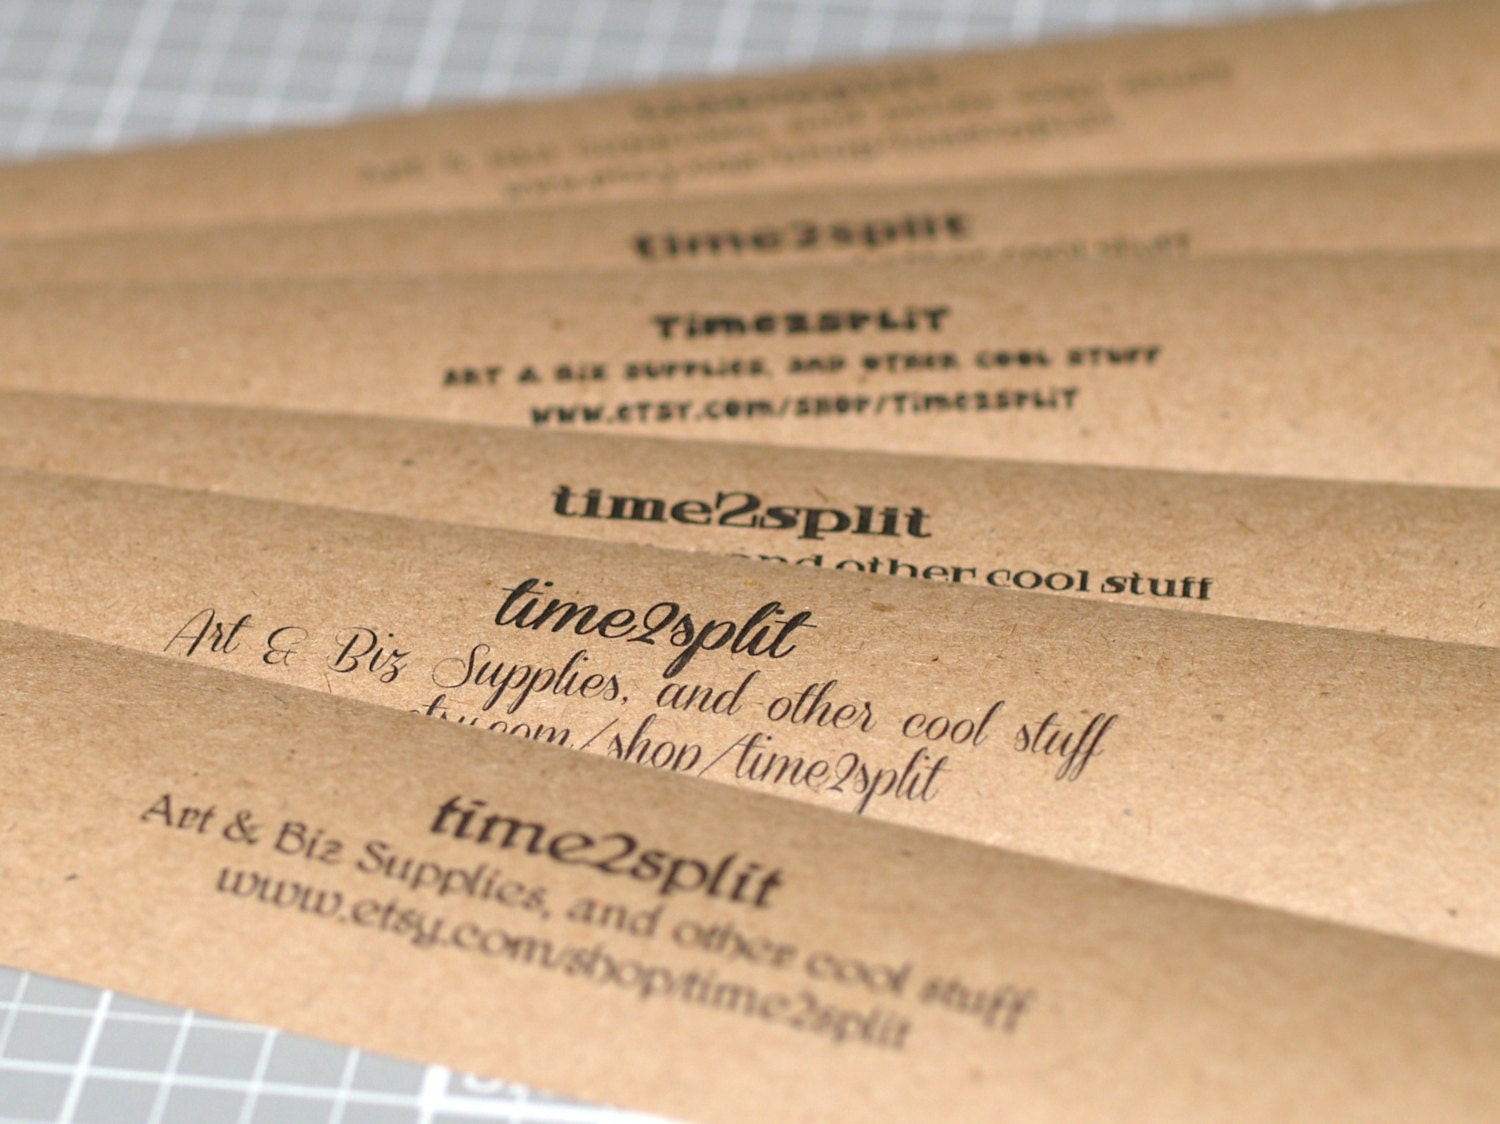 Art & Biz Supplies, and other cool stuff
time2split
Time2split
Art & Biz Supplies, and other cool stuff
www.etsy.com/shop/Time2split
time2split
and other cool stuff
time2split
Art & Biz Supplies, and other cool stuff
etsy.com/shop/time2split
time2split
Art & Biz Supplies, and other cool stuff
www.etsy.com/shop/time2split